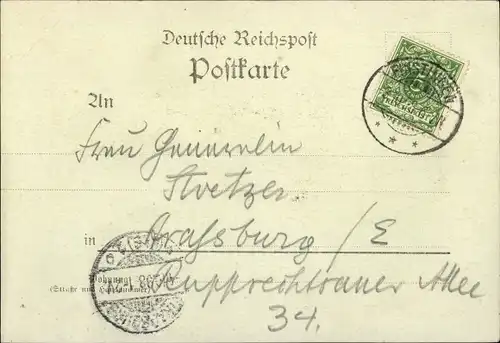 Deutsche Reichspost
Postkarte
An
Frau Generalin
Stoetzer
in Straßburg / E
Wohnung
(Straße und Hausnummer)
Rupprechtsauer Allee
34.